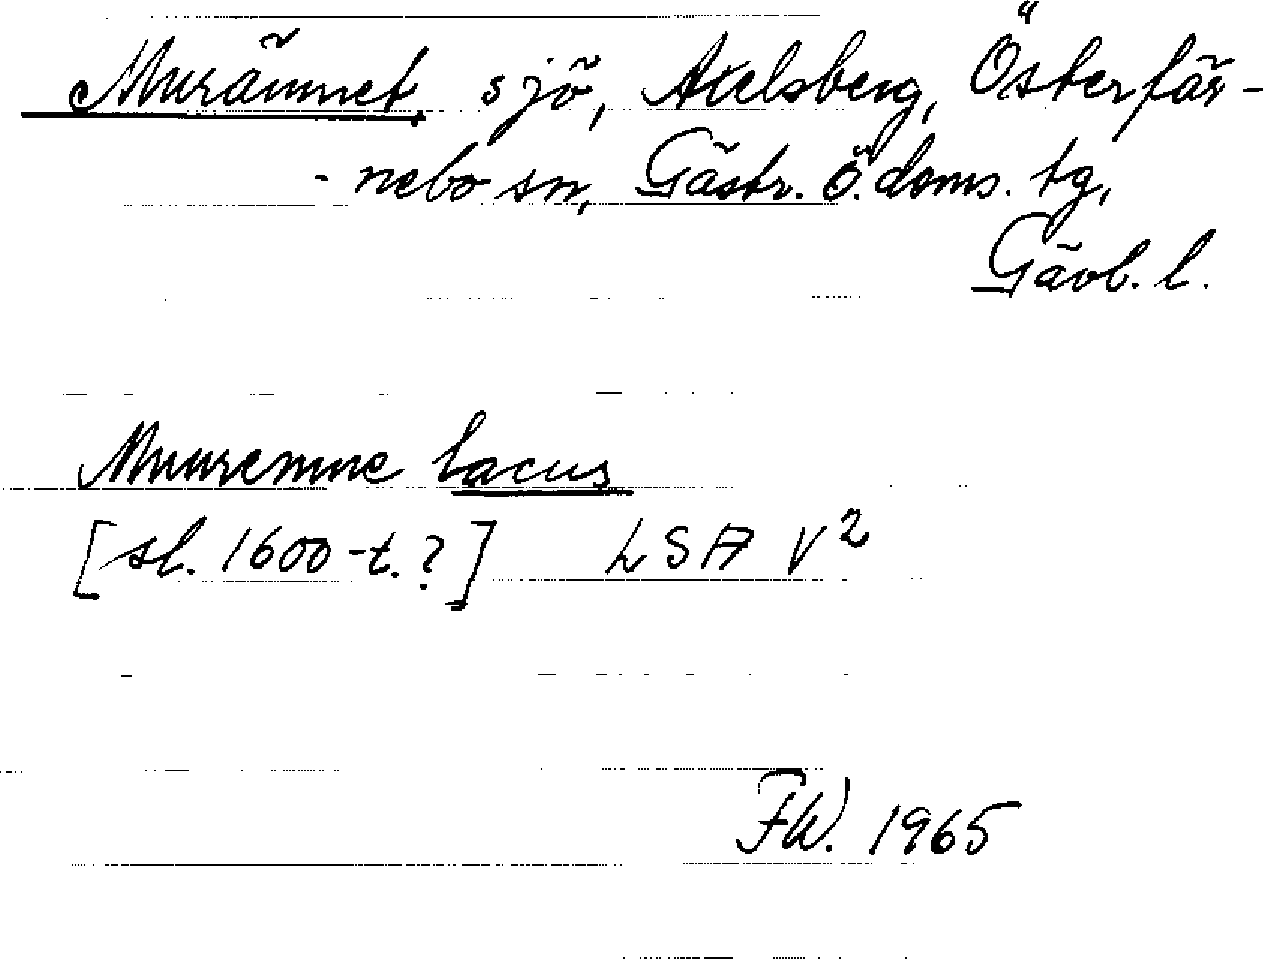 Murämnet, sjö, Axelsberg, Österfär-
- nebo sn, Gästr. ö. doms. tg,
Gävb. l.
Muuremne lacus
[sl. 1600-t.?] LSA V²
FW. 1965